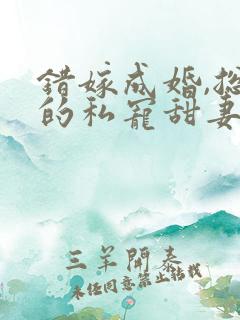 错嫁成婚,总
的私宠甜妻
三羊開泰
未经同意禁止转载